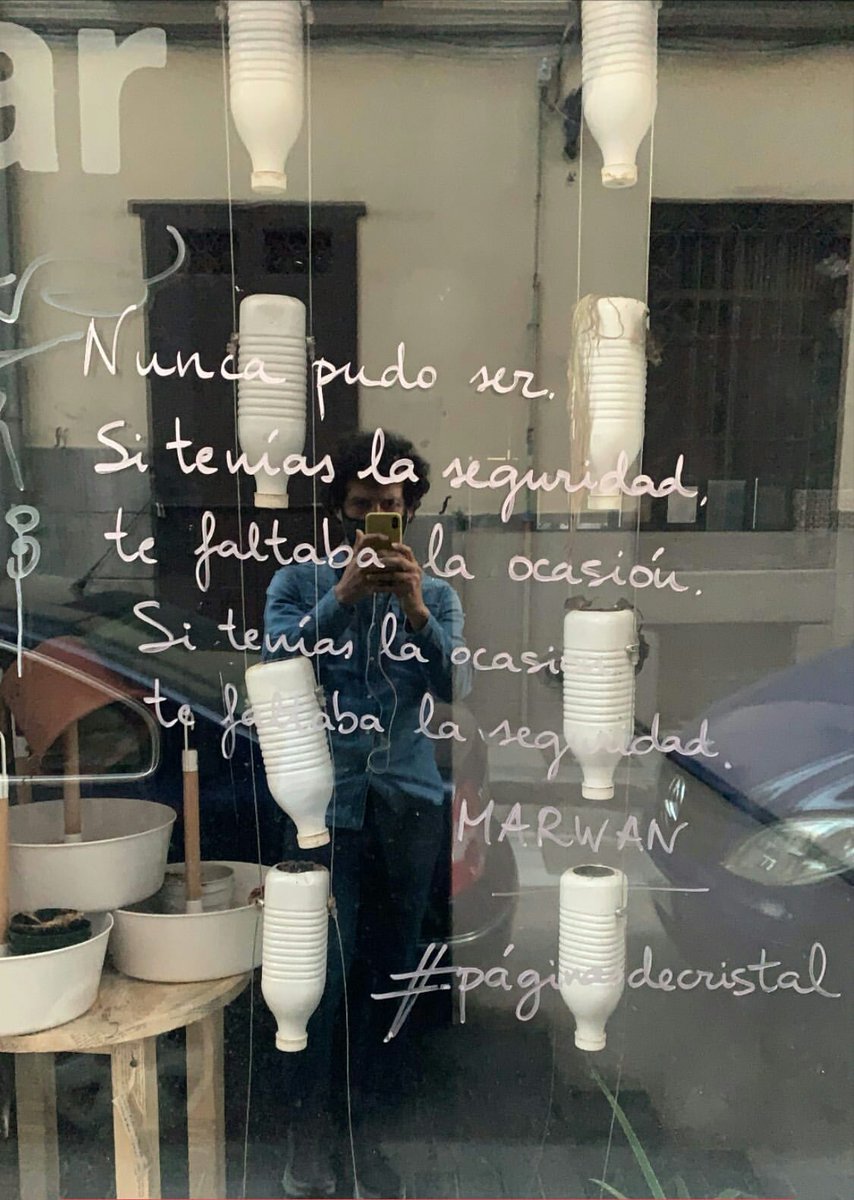 ar
Nunca pudo ser.
Si tenías la seguridad,
te faltaba la ocasión.
Si tenías la ocasión,
te faltaba la seguridad.
MARWAN
#páginasdecristal